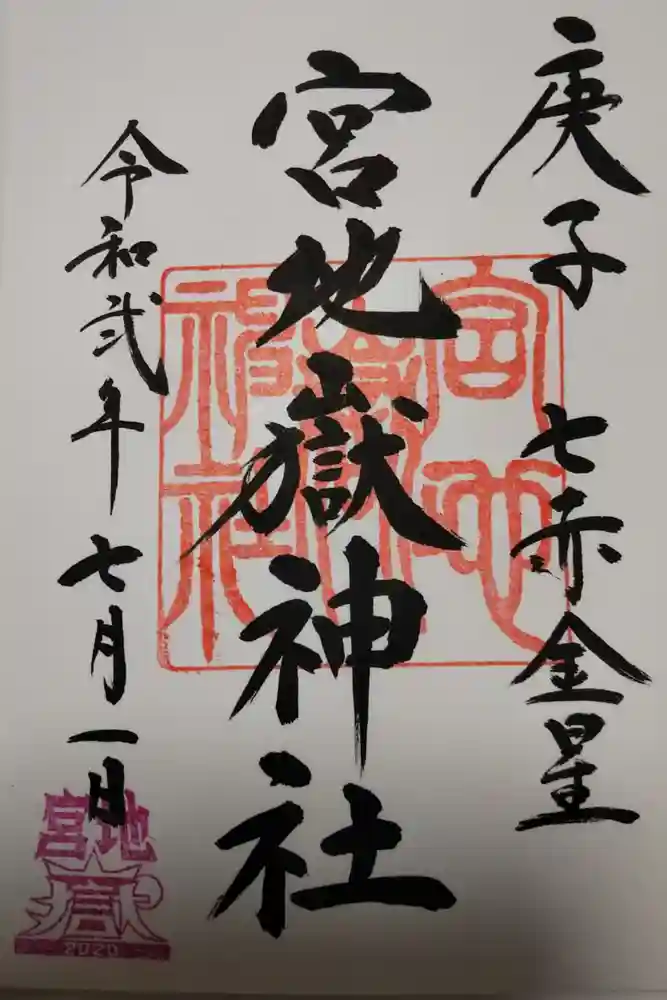 庚子 七赤金星
宮地嶽神社
令和弐年七月一日
宮地嶽神社
宮地
嶽
2020